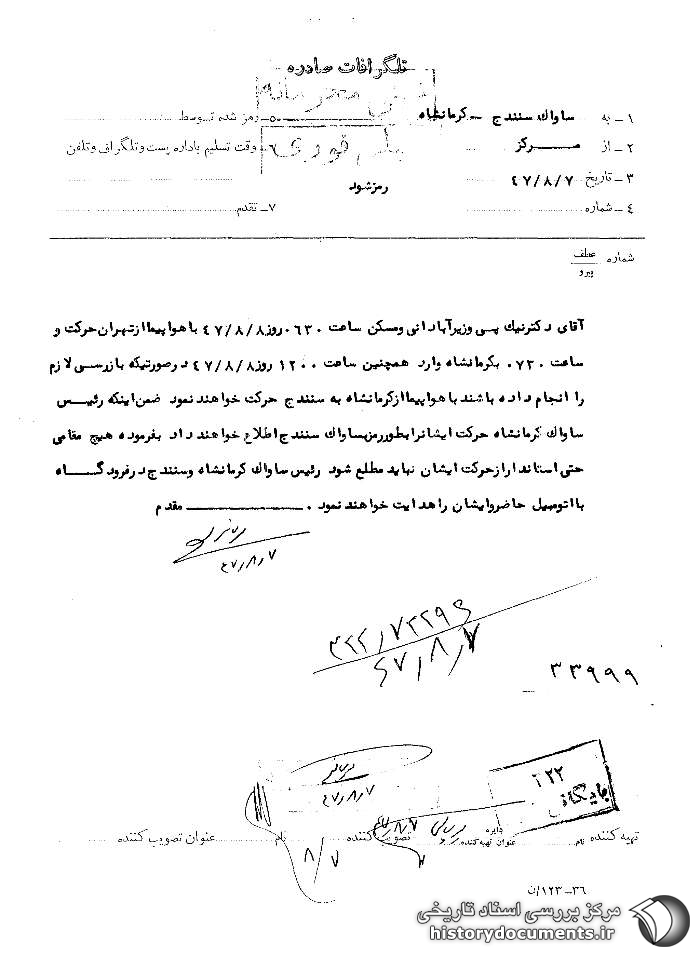 تلگرافات صادره
خیلی محرمانه
۱ـ به ساواک سنندج ـ کرمانشاه
۵ـ رمز شده توسط
۲ـ از مـــرکز
۶ـ وقت تسلیم باداره پست و تلگراف و تلفن
خیلی فوری
۳ـ تاریخ ۴۷/۸/۷
رمز شود
۴ـ شماره
۷ـ تقدم
شماره عطف
پیرو
آقای دکتر نیک پی وزیر آبادانی و مسکن ساعت ۰۶۳۰ روز ۴۷/۸/۸ با هواپیما از تهران حرکت و
ساعت ۰۷۳۰ بکرمانشاه وارد همچنین ساعت ۱۲۰۰ روز ۴۷/۸/۸ در صورتیکه بازرسی لازم
را انجام داده باشند با هواپیما از کرمانشاه به سنندج حرکت خواهند نمود ضمن اینکه رئیس
ساواک کرمانشاه حرکت ایشانرا بطور رمز بساواک سنندج اطلاع خواهند داد بفرموده هیچ مقامی
حتی استاندار از حرکت ایشان نباید مطلع شود رئیس ساواک کرمانشاه و سنندج در فرودگـــاه
با اتومبیل حاضر و ایشان را هدایت خواهند نمود . مقدم
۴۷/۸/۷
۳۲۲/۷۲۲۹۶
۴۷/۸/۷
۳۳۹۹۹
۴۷/۸/۷
۳۲۲
بایگانی
۴۷/۸/۷
تهیه کننده نام دایره عنوان تهیه کننده تصویب کننده نام عنوان تصویب کننده
۸/۷
۳۶ـ۱۲۳/ن
مرکز بررسی اسناد تاریخی
historydocuments.ir